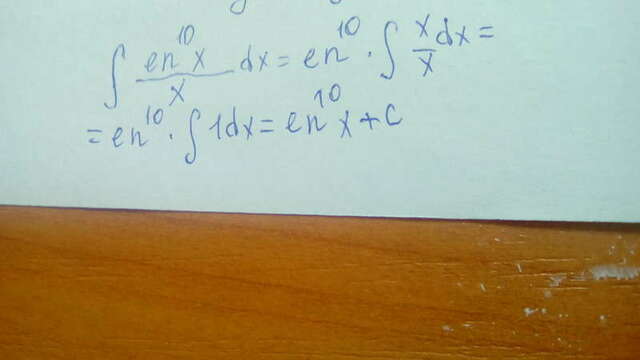 ∫ ln¹⁰x / x dx = ln¹⁰ · ∫ x/x dx =
= ln¹⁰ · ∫ 1dx = ln¹⁰ x + c